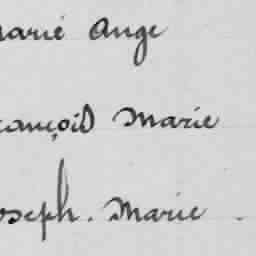 Marie Ange
françois Marie
Joseph. Marie.